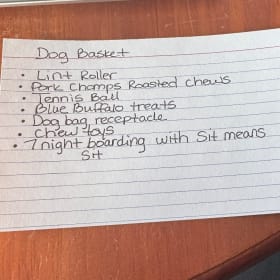 Dog Basket
• Lint Roller
• Pork Chomps Roasted chews
• Tennis Ball
• Blue Buffalo treats
• Dog bag receptacle
• Chew toys
• 7 night boarding with Sit means
Sit